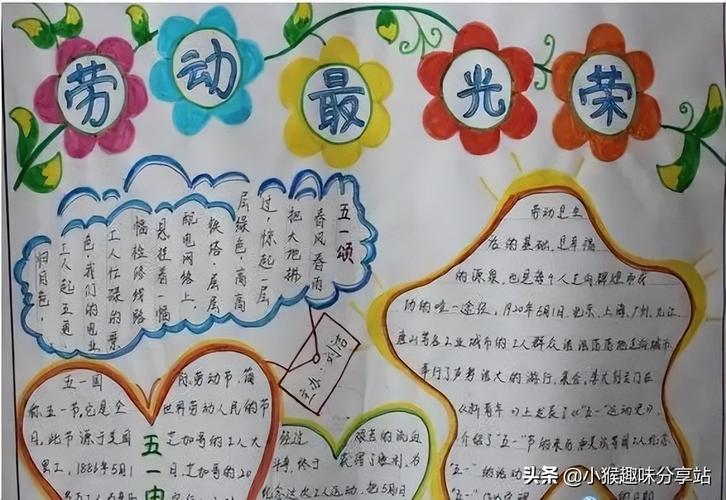 劳动最光荣
五一颂
春风春雨
把大地拂
过，惊起一层
层绿色，高高
铁塔，层层
配电网络上，
悬挂着一幅
幅检修线路
工人忙碌的景
色，我们的电业
工人起五更，
归月色，
主办：刘浩
劳动是生
在的基础，是幸福
的源泉，也是每个人走向辉煌
功的唯一途径，1920年5月1日，北京、上海、广州、九江、
唐山等各工业城市的工人群众浩浩荡荡地走向城市、
举行了声势浩大的游行、集会。李大钊
《新青年》上发表了《"五一"运动史》，
介绍了"五一"节的来历
"五一"的活动
五一国际劳动节，简
称五一节，它是全世界劳动人民的节
日，此节源于美国芝加哥的工人大
罢工，1886年5月1日，芝加哥的20
五一由
经过艰苦的流血
斗争，终于获得了胜利，为
纪念这次工人运动，把5月日
头条 @小猴趣味分享站